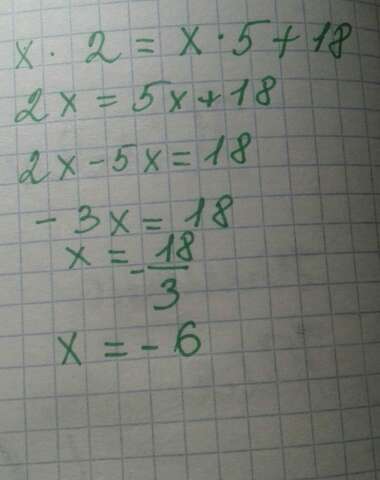 x · 2 = x · 5 + 18
2x = 5x + 18
2x - 5x = 18
- 3x = 18
x = - 18/3
x = - 6